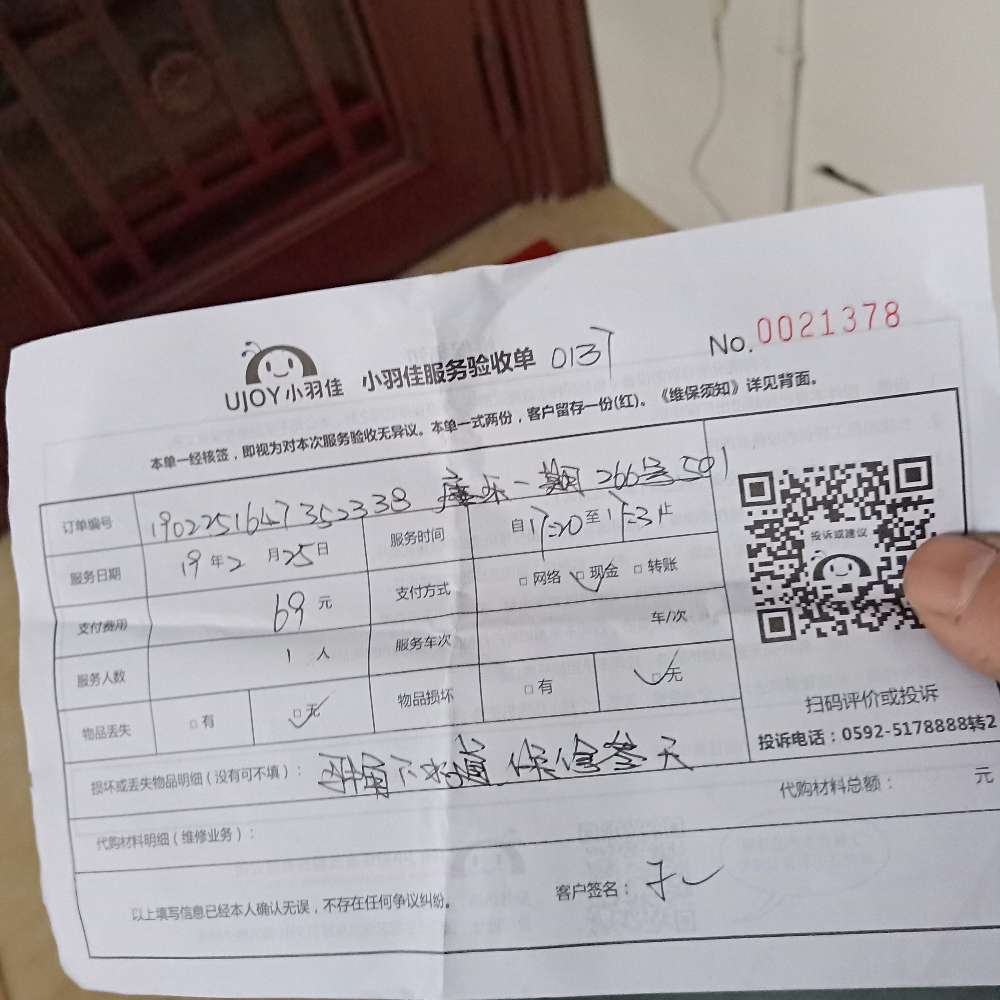 UJOY小羽佳 小羽佳服务验收单 0137 No.0021378
本单一经核签，即视为对本次服务验收无异议。本单一式两份，客户留存一份(红)。《维保须知》详见背面。
订单编号 190225164735 2338 康乐一期266号501
服务日期 19年2月25日 服务时间 自17:20至17:31
支付费用 69元 支付方式 □网络 □现金 □转账
服务人数 1人 服务车次 车/次
物品丢失 □有 □无 物品损坏 □有 □无
投诉或建议
扫码评价或投诉
投诉电话：0592-5178888转2
损坏或丢失物品明细（没有可不填）： 下水道 保修叁天
代购材料明细（维修业务）： 代购材料总额： 元
以上填写信息已经本人确认无误，不存在任何争议纠纷。 客户签名：